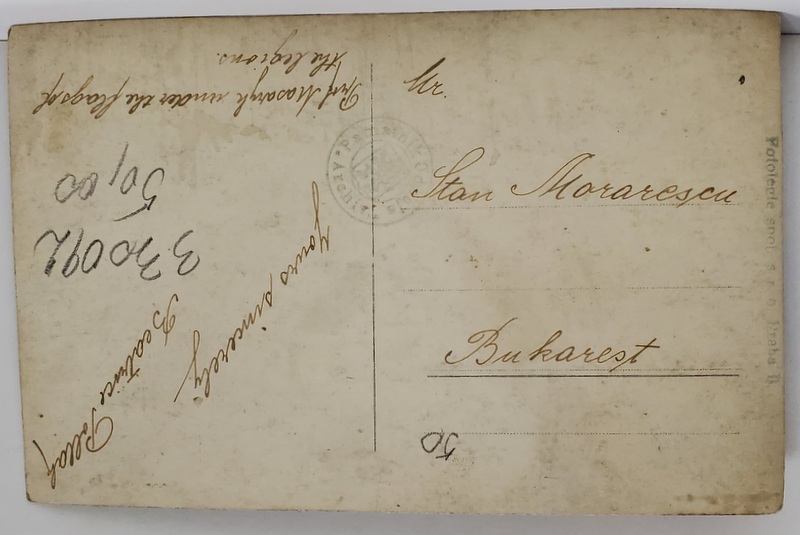 Prof. Masaryk under the flags of
the legions.
50,00
33092
Yours sincerely
Beatrice Pollak
Mr.
Stan Morarescu
Bukarest
50
Fotolepte spol. s r. o. Praha II.